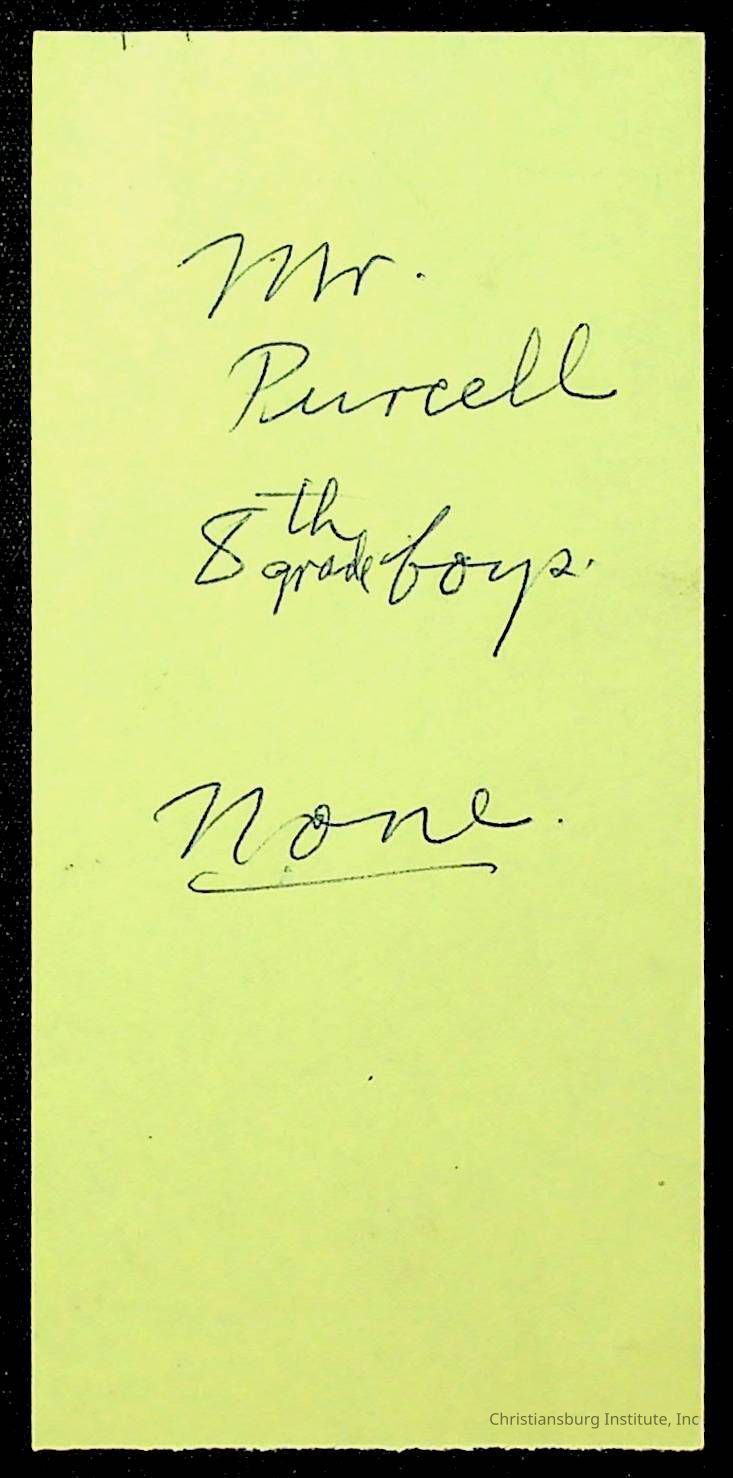 Mr.
Purcell
8th grade boys.
None.
Christiansburg Institute, Inc